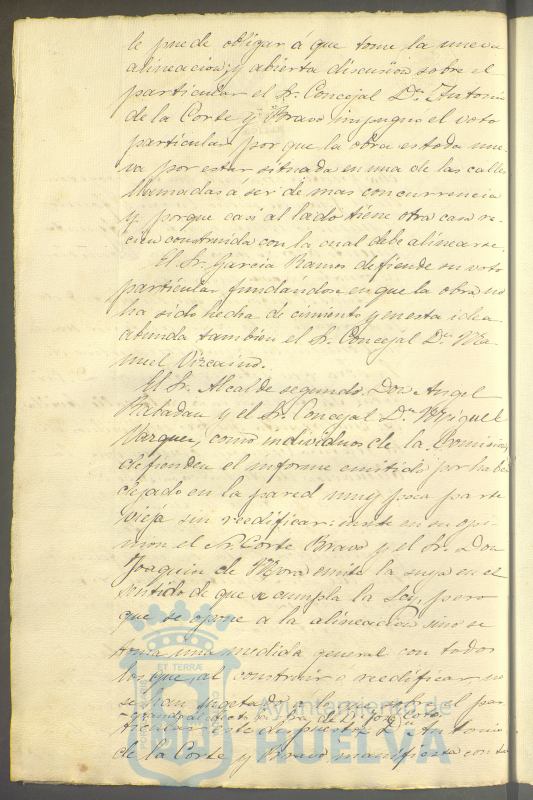 le puede obligar a que tome la nueva
alineacion; y abierta discusion sobre el
particular el Sr. Concejal Dn. Antonio
de la Corte y Bravo impugno el voto
particular por que la obra es toda nue-
va por estar situada en una de las calles
llamadas a ser de mas concurrencia
y porque casi al lado tiene otra casa re-
cien construida con la cual debe alinearse.
El Sr. Garcia Ramos defiende su voto
particular fundandose en que la obra no
ha sido hecha de cimiento y en esta idea
abunda tambien el Sr. Concejal Dn. Ma-
nuel Vizcaino.
El Sr. Alcalde segundo Don Angel
Rabadan y el Sr. Concejal Dn. Miguel
Vazquez, como individuos de la Comision
defienden el informe emitido por haber
dejado en la pared muy poca parte
vieja sin reedificar: insiste en su opi-
nion el Sr. Corte Bravo y el Sr. Don
Joaquin de Mora emite la suya en el
sentido de que se cumpla la Ley, pero
que se opone a la alineacion sino se
toma una medida general con todos
los que al construir o reedificar, no
se han sugetado a la
de la Corte y Bravo manifiesta
ET TERRÆ
Ayuntamiento de
HUELVA